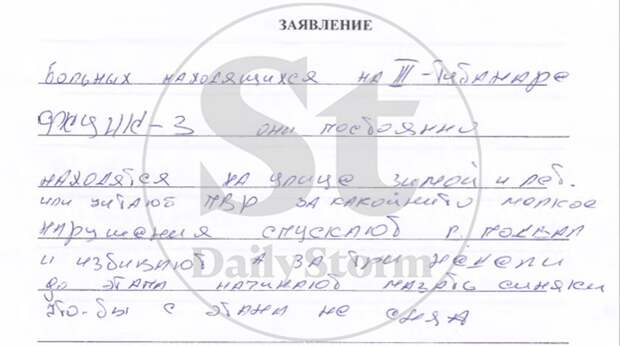 ЗАЯВЛЕНИЕ
больных находящихся на III-
они постоянно
находятся на улице зимой и лет.
или читают ПВР за какойнито мелкое
нарушения спускают в подвал
и избивают А за три недели
до этапа начинают мазать синяки
что-бы с этапа не сняд
St
DailyStorm